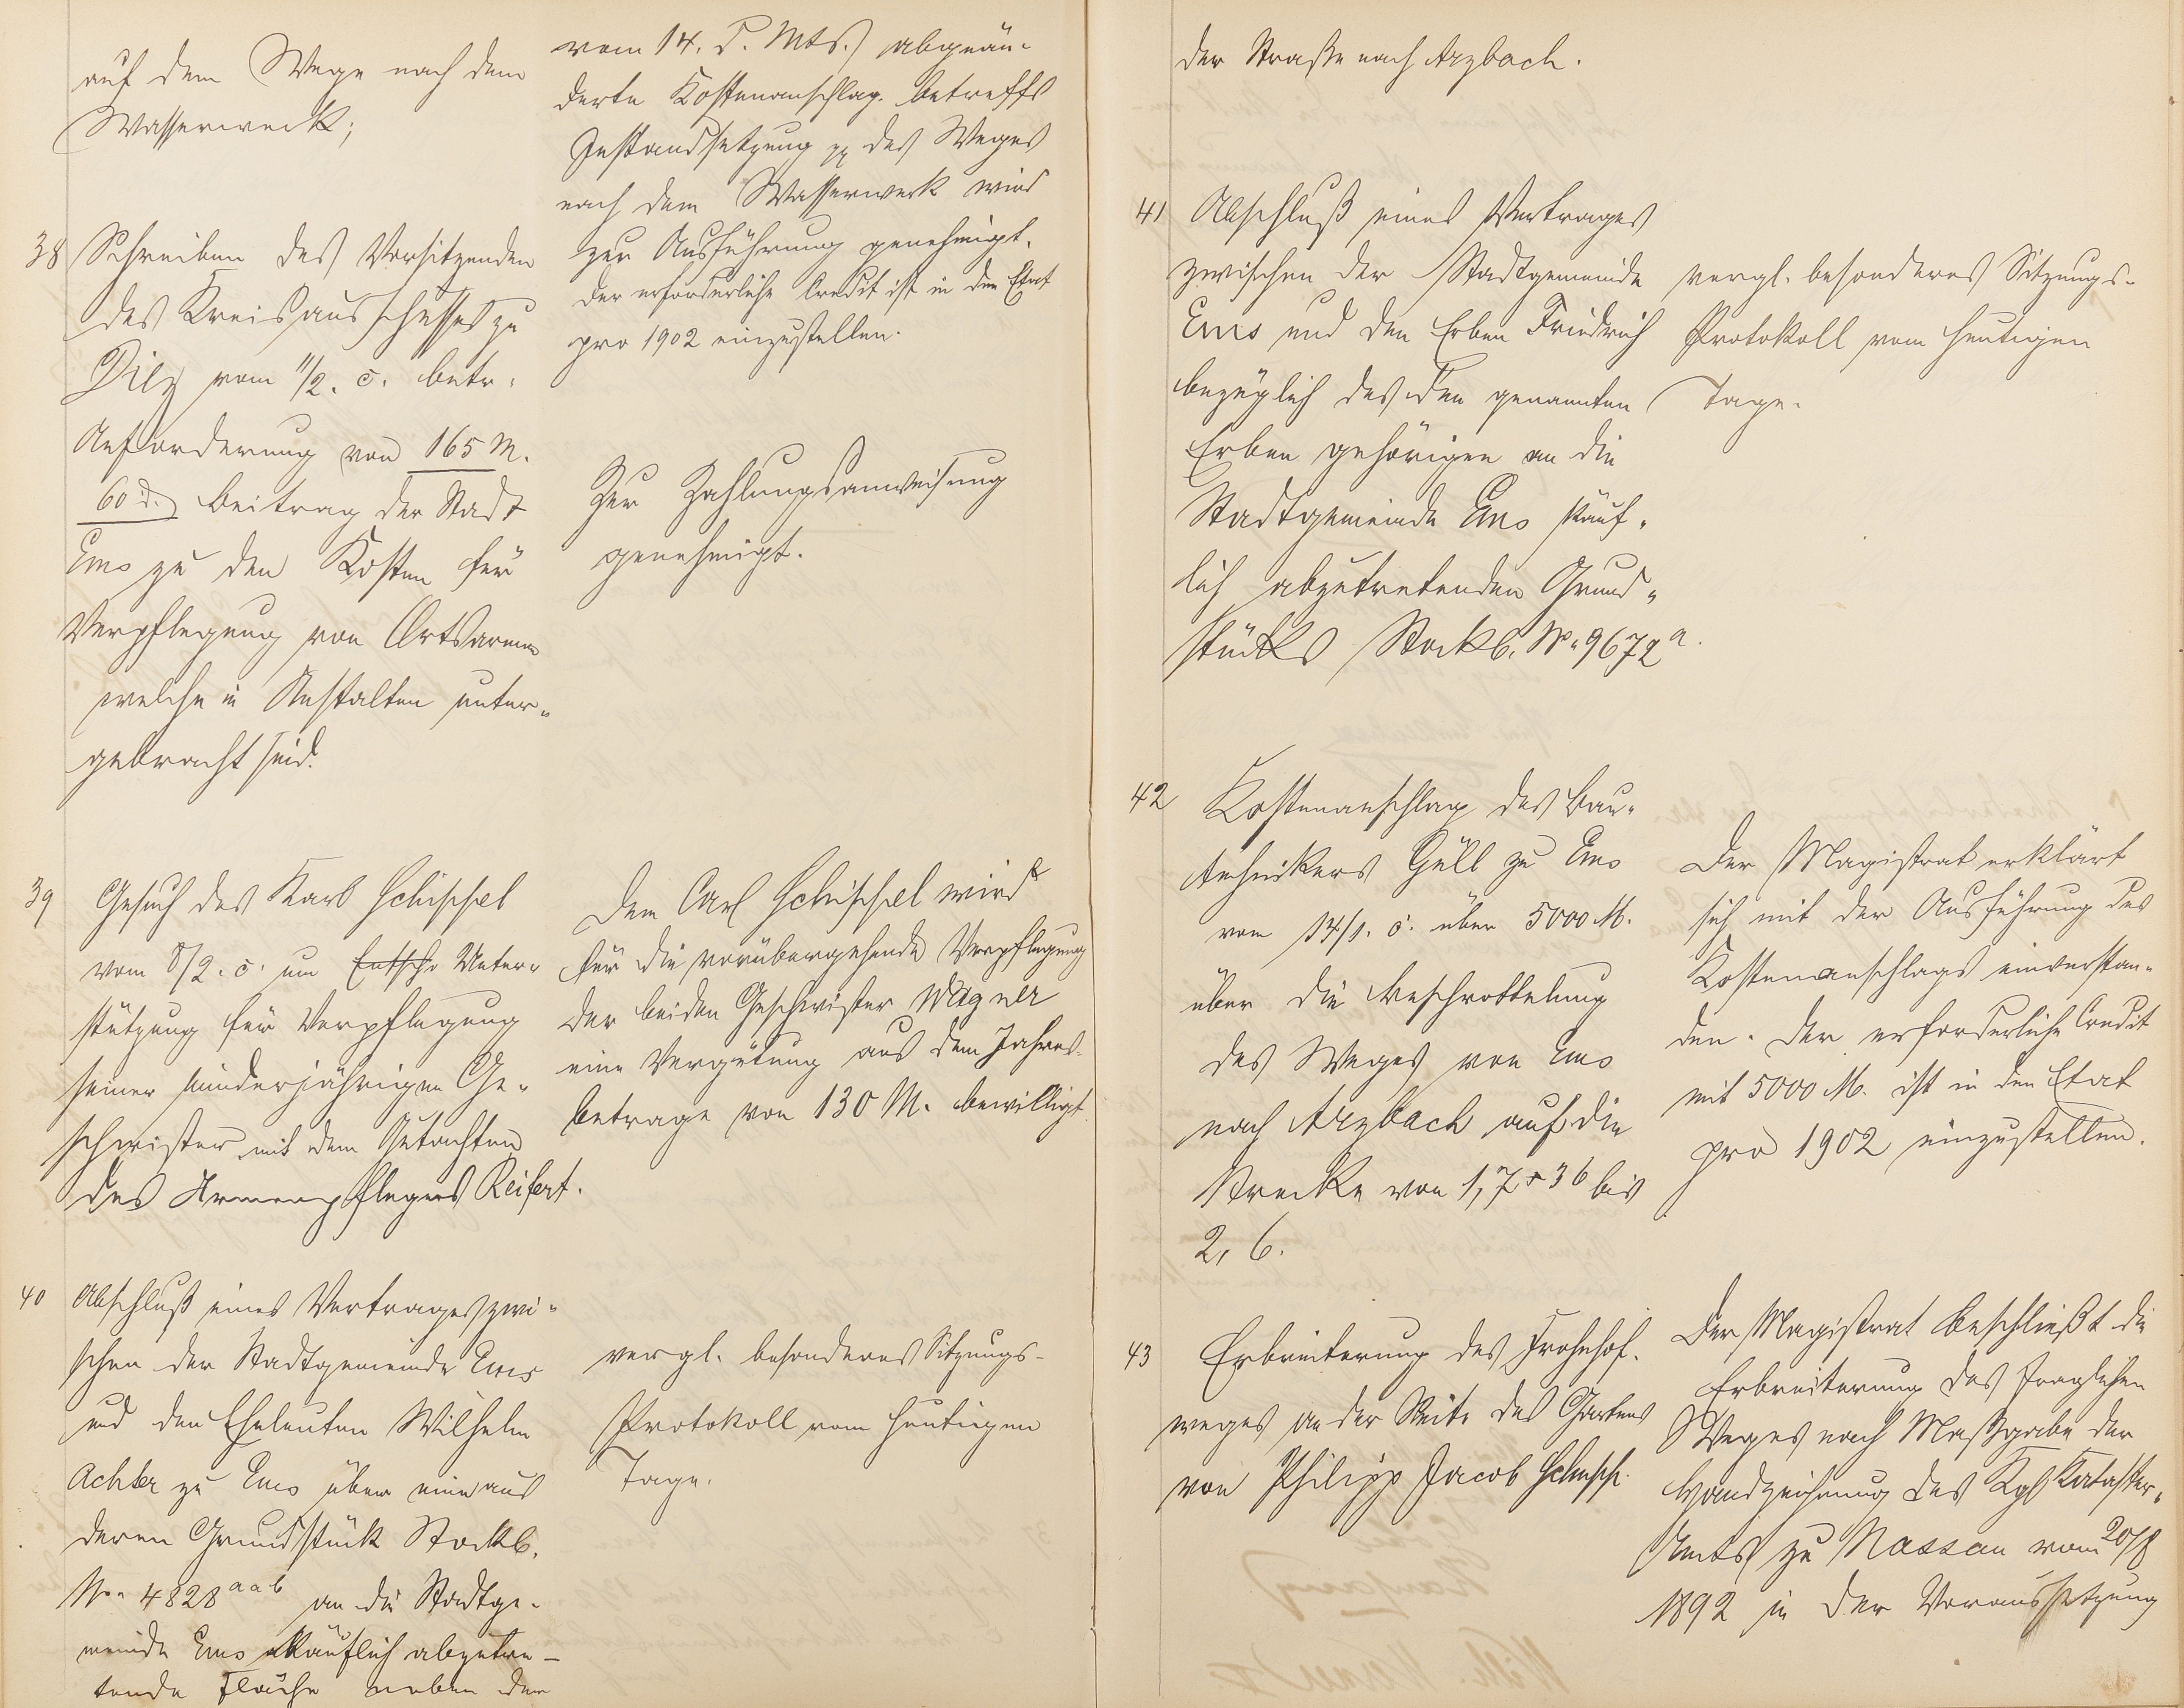 auf dem Wege nach dem
Wasserwerk;
vom 14. d. Mts.) abgeän-
derte Kostenanschlag betreffs
Instandsetzung pp des Weges
nach dem Wasserwerk wird
zur Ausführung genehmigt.
Der erforderliche Credit ist in den Etat
pro 1902 einzustellen.
38 Schreiben des Vorsitzenden
des Kreisausschusses zu
Diez vom 11/2. c. betr.
Anforderung von 165 M.
60 d. Beitrag der Stadt
Ems zu den Kosten für
Verpflegung von Ortsarmen
welche in Anstalten unter-
gebracht sind.
Zur Zahlungsanweisung
genehmigt.
39 Gesuch des Karl Schippel
vom 8/2. c. um Entsch. Unter-
stützung für Verpflegung
seiner minderjährigen Ge-
schwister mit dem Gutachten
des Armenpflegers Reifert.
Dem Carl Schippel wird
für die vorübergehende Verpflegung
der beiden Geschwister Wagner
eine Vergütung aus dem Jahres-
betrage von 130 M. bewilligt.
40 Abschluß eines Vertrages zwi-
schen der Stadtgemeinde Ems
und den Eheleuten Wilhelm
Achler zu Ems über eine aus
deren Grundstück Stockb.
No. 4828 a a b an die Stadtge-
meinde Ems käuflich abzutre-
tende Fläche neben der
vergl. besonderes Sitzungs-
Protokoll vom heutigen
Tage.
der Straße nach Arzbach.
41 Abschluß eines Vertrages
zwischen der Stadtgemeinde
Ems und den Erben Friedrich
bezüglich des den genannten
Erben gehörigen an die
Stadtgemeinde Ems käuf-
lich abzutretenden Grund-
stücks Stockb. No. 9672 a.
vergl. besonderes Sitzungs-
Protokoll vom heutigen
Tage.
42 Kostenanschlag des Bau-
technikers Güll zu Ems
vom 14/1. c. über 5000 M.
über die Beschrottelung
des Weges von Ems
nach Arzbach auf die
Strecke von 1,7 + 36 bis
2,6.
Der Magistrat erklärt
sich mit der Ausführung des
Kostenanschlags einverstan-
den. Der erforderliche Credit
mit 5000 M. ist in den Etat
pro 1902 einzustellen.
43 Erbreiterung des Frohnhof-
weges an der Seite des Gartens
von Philipp Jacob Schupp.
Der Magistrat beschließt die
Erbreiterung des fraglichen
Weges nach Maßgabe der
Handzeichnung des Kgl Kataster-
Amts zu Nassau vom 20/8
1892 in der Voraussetzung